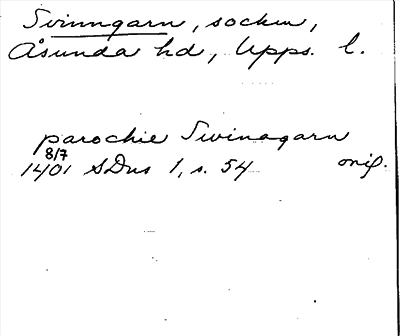 Svinngarn, socken,
Åsunda hd, Upps. l.
parochie Swinagarn
8/7
1401 SDns 1, s. 54 orig.